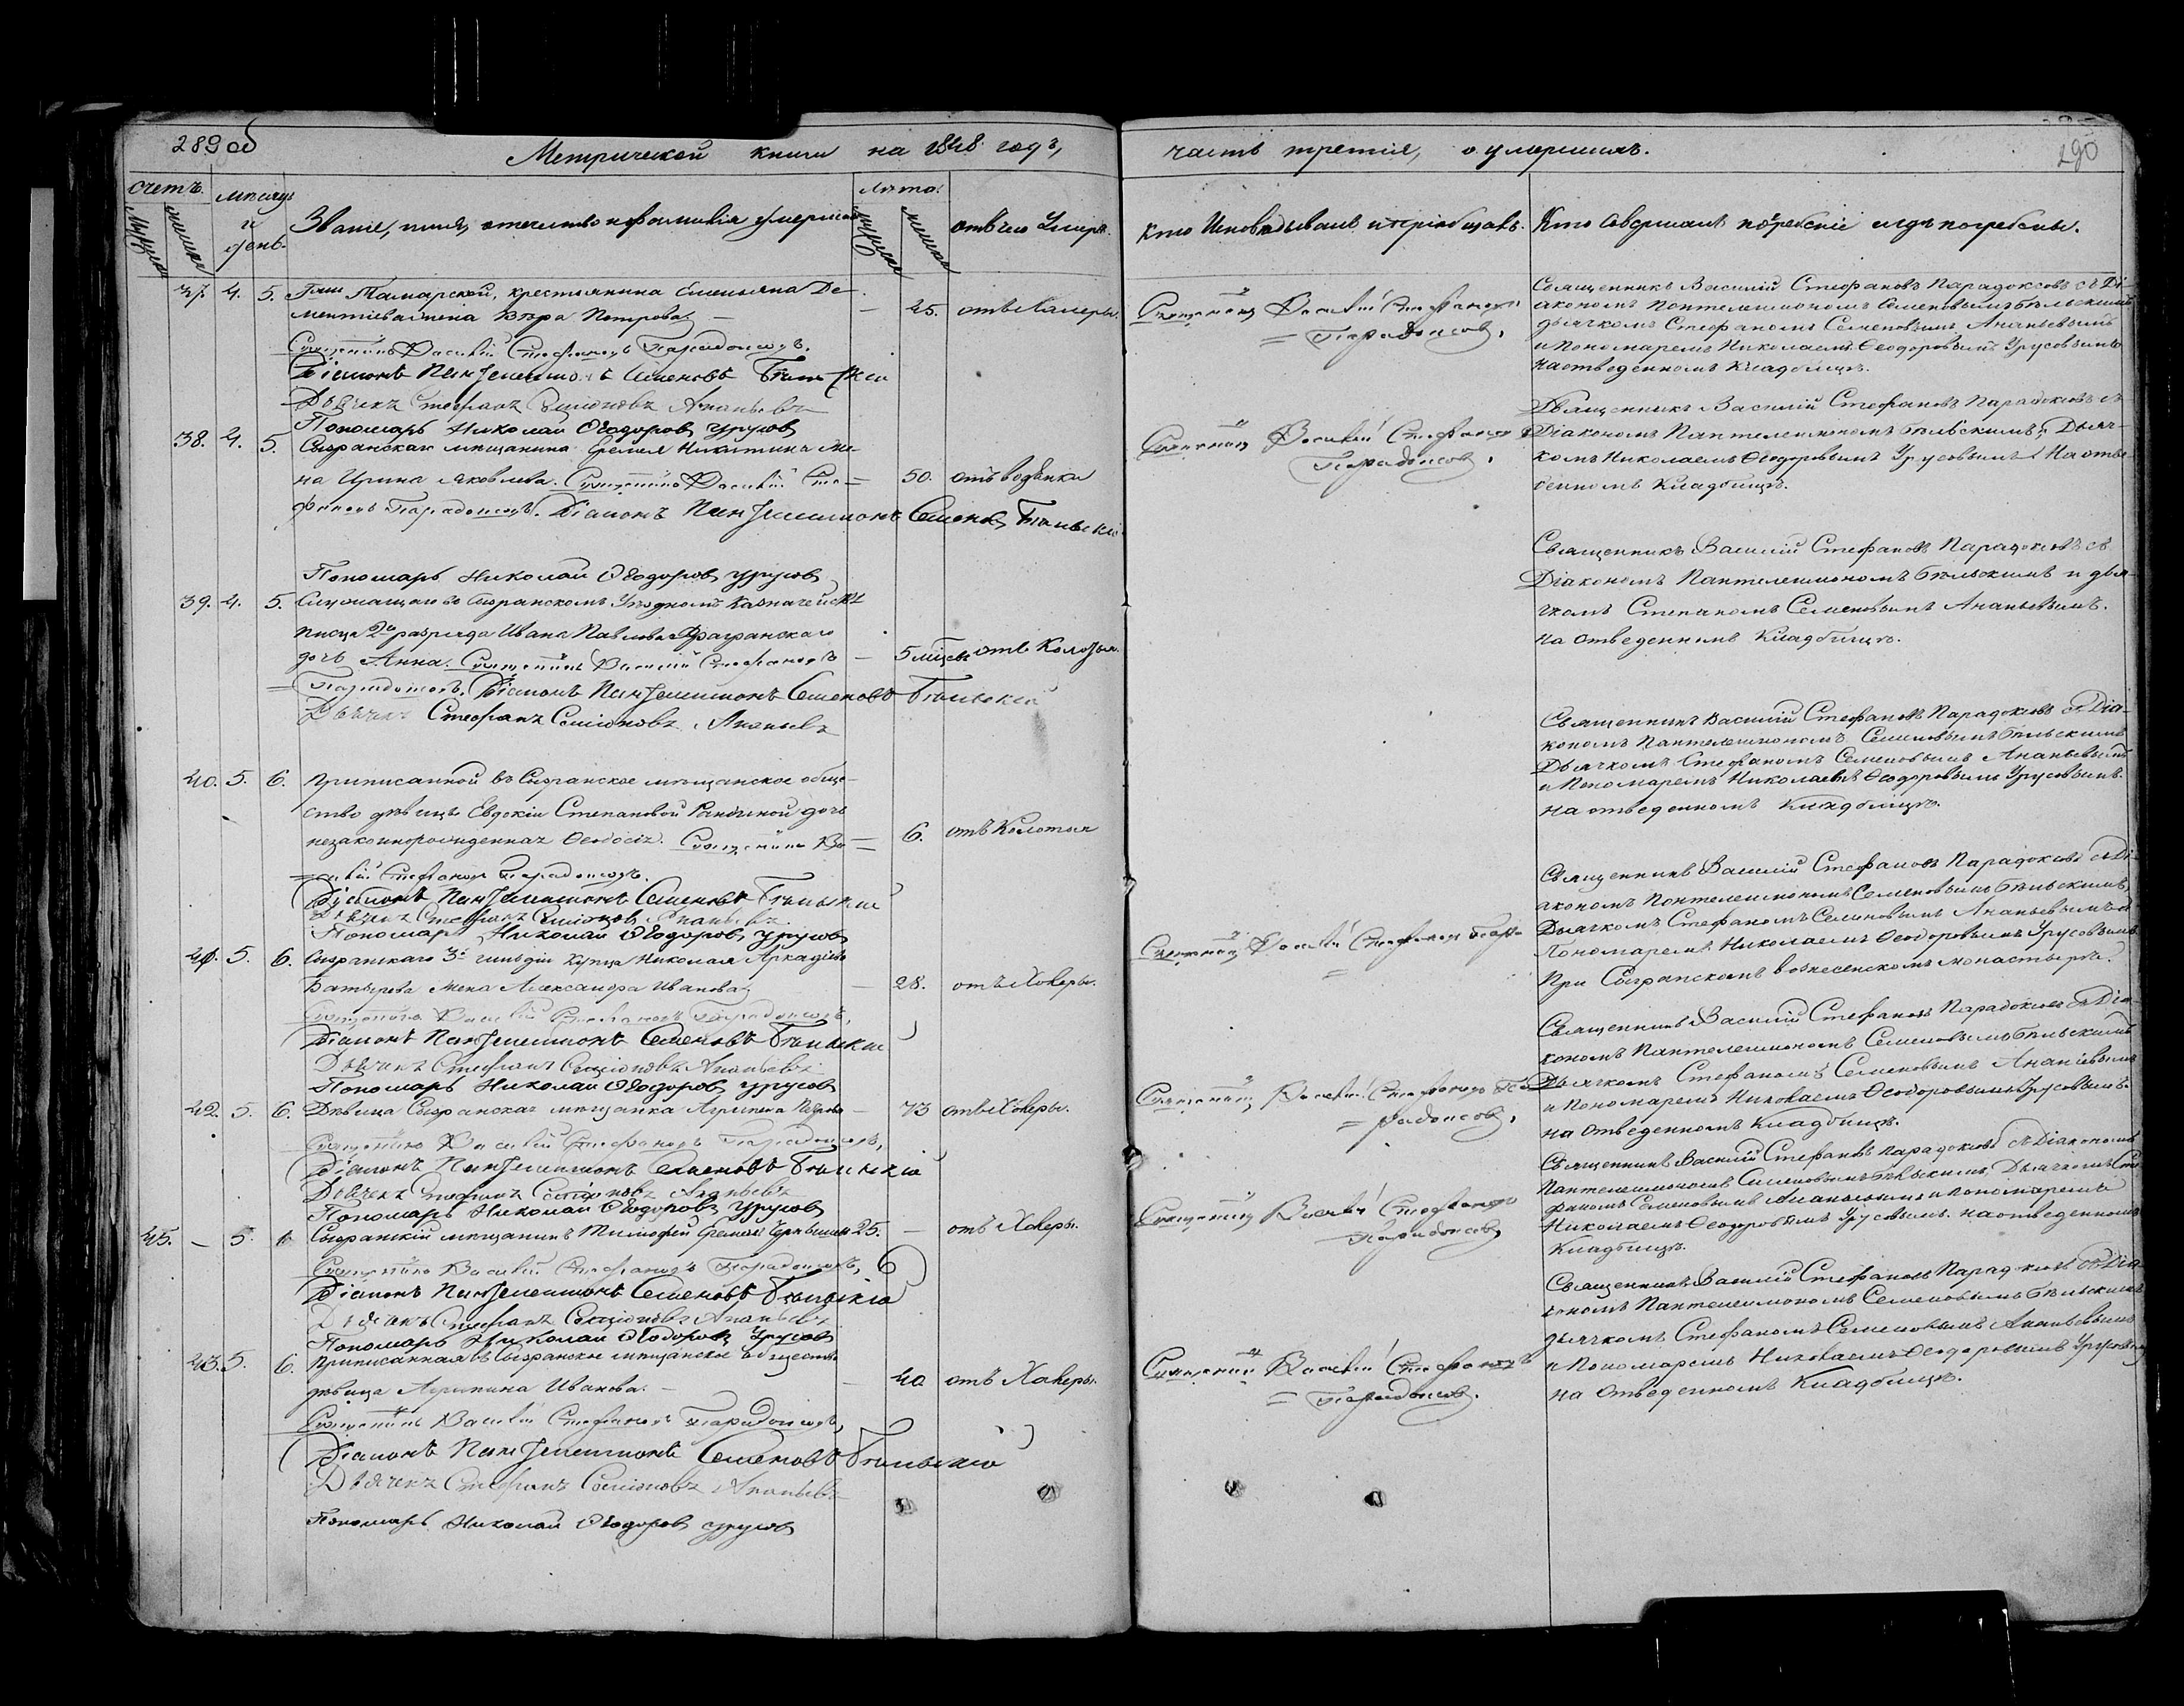 289 об
Метрической книги на 1848 годъ, часть третія, о умершихъ.
290
счетъ. мѣсяцъ и день. Званіе, имя, отечество и фамилія умершихъ лѣта. отъ чего умеръ. Кто исповѣдывалъ и пріобщалъ. Кто совершалъ погребеніе и гдѣ погребены.
37. 4. 5. крестьянина Емельяна Де-
ментіева жена Вѣра Петрова — — 25. отъ Холеры.
Священникъ Василій Стефановъ Парадоксовъ.
Діаконъ Пантелеимонъ Семеновъ Бѣльскій
Дьячекъ Стефанъ Симіоновъ Ананьевъ
Пономарь Николай Ѳеодоровъ Урусовъ
Священникъ Василій Стефановъ
Парадоксовъ.
Священникъ Василій Стефановъ Парадоксовъ съ Ді-
акономъ Пантелеимономъ Семеновымъ Бѣльскимъ
дьячкомъ Стефаномъ Семеновымъ Ананьевымъ
и Пономаремъ Николаемъ Ѳеодоровымъ Урусовымъ
на отведенномъ Кладбищѣ.
38. 4. 5. Сызранскаго мѣщанина Еремея Никитина же-
на Ирина Яковлева. Священникъ Василій Сте- 50. отъ водянки
фановъ Парадоксовъ. Діаконъ Пантелеимонъ Семеновъ Бѣльскій
Пономарь Николай Ѳеодоровъ Урусовъ
Священникъ Василій Стефановъ
Парадоксовъ.
Священникъ Василій Стефановъ Парадоксовъ съ
Діакономъ Пантелеимономъ Бѣльскимъ, Дьяч-
комъ Николаемъ Ѳеодоровымъ Урусовымъ. На отве-
денномъ Кладбищѣ.
39. 4. 5. Служащаго въ Сызранскомъ Уѣздномъ Казначействѣ
писца 2го разряда Ивана Павлова
дочь Анна. Священникъ Василій Стефановъ — 5 мѣсяц. отъ Колотья.
Парадоксовъ. Діаконъ Пантелеимонъ Семеновъ Бѣльскій
Дьячекъ Стефанъ Симіоновъ Ананьевъ
Священникъ Василій Стефановъ Парадоксовъ съ
Діакономъ Пантелеимономъ Бѣльскимъ и дья-
чкомъ Степаномъ Семеновымъ Ананьевымъ.
на отведенномъ Кладбищѣ.
40. 5. 6. Приписанной въ Сызранское мѣщанское обще-
ство дѣвицы Евдокіи Степановой дочь
незаконнорожденная Ѳеодосія. Священникъ Ва- 6. отъ Колотья
силій Стефановъ Парадоксовъ.
Діаконъ Пантелеимонъ Семеновъ Бѣльскій
Дьячекъ Стефанъ Симіоновъ Ананьевъ.
Пономарь Николай Ѳеодоровъ Урусовъ
Священникъ Василій Стефановъ Парадоксовъ съ Діа-
кономъ Пантелеимономъ Семеновымъ Бѣльскимъ
Дьячкомъ Стефаномъ Семеновымъ Ананьевымъ
и Пономаремъ Николаемъ Ѳеодоровымъ Урусовымъ
на отведенномъ Кладбищѣ.
41. 5. 6. Сызранскаго 3й гильдіи Купца Николая Аркадіева
жена Александра Иванова — 28. отъ Холеры.
Священникъ Василій Стефановъ Парадоксовъ,
Діаконъ Пантелеимонъ Семеновъ Бѣльскій
Дьячекъ Стефанъ Симіоновъ Ананьевъ
Пономарь Николай Ѳеодоровъ Урусовъ
Священникъ Василій Стефановъ Пара-
Священникъ Василій Стефановъ Парадоксовъ съ Ді-
акономъ Пантелеимономъ Семеновымъ Бѣльскимъ,
Дьячкомъ Стефаномъ Семеновымъ Ананьевымъ и
Пономаремъ Николаемъ Ѳеодоровымъ Урусовымъ
При Сызранскомъ вознесенскомъ монастырѣ.
42. 5. 6. Дѣвица Сызранская мѣщанка Агрипена Петрова — 73 отъ Холеры.
Священникъ Василій Стефановъ Парадоксовъ,
Діаконъ Пантелеимонъ Семеновъ Бѣльскій
Дьячекъ Стефанъ Симіоновъ Ананьевъ
Пономарь Николай Ѳеодоровъ Урусовъ
Священникъ Василій Стефановъ Па-
радоксовъ,
Священникъ Василій Стефановъ Парадоксовъ съ Діа-
кономъ Пантелеимономъ Семеновымъ Бѣльскимъ
Дьячкомъ Стефаномъ Семеновымъ Ананіевымъ
и Пономаремъ Николаемъ Ѳеодоровымъ Урусовымъ.
на отведенномъ Кладбищѣ.
45. — 5. 6 Сызранскій мѣщанинъ Тимофей 25. — отъ Холеры.
Священникъ Василій Стефановъ Парадоксовъ,
Діаконъ Пантелеимонъ Семеновъ Бѣльскій
Дьячекъ Стефанъ Симіоновъ Ананьевъ
Пономарь Николай Ѳеодоровъ Урусовъ
Священникъ Василій Стефановъ
Парадоксовъ
Священникъ Василій Стефановъ Парадоксовъ съ Діакономъ
Пантелеимономъ Семеновымъ Бѣльскимъ, Дьячкомъ Сте-
фаномъ Семеновымъ Ананьевымъ и пономаремъ
Николаемъ Ѳеодоровымъ Урусовымъ. на отведенномъ
Кладбищѣ.
43. 5. 6. Приписанная въ Сызранское мѣщанское общество
дѣвица Агрипина Иванова. — — 40 отъ Холеры.
Священникъ Василій Стефановъ Парадоксовъ,
Діаконъ Пантелеимонъ Семеновъ Бѣльскій
Дьячекъ Стефанъ Симіоновъ Ананьевъ
Пономарь Николай Ѳеодоровъ Урусовъ
Священникъ Василій Стефановъ
Парадоксовъ.
Священникъ Василій Стефановъ Парадоксовъ съ Діа-
кономъ Пантелеимономъ Семеновымъ Бѣльскимъ
дьячкомъ Стефаномъ Семеновымъ Ананьевымъ
и Пономаремъ Николаемъ Ѳеодоровымъ Урусовымъ
на Отведенномъ Кладбищѣ.